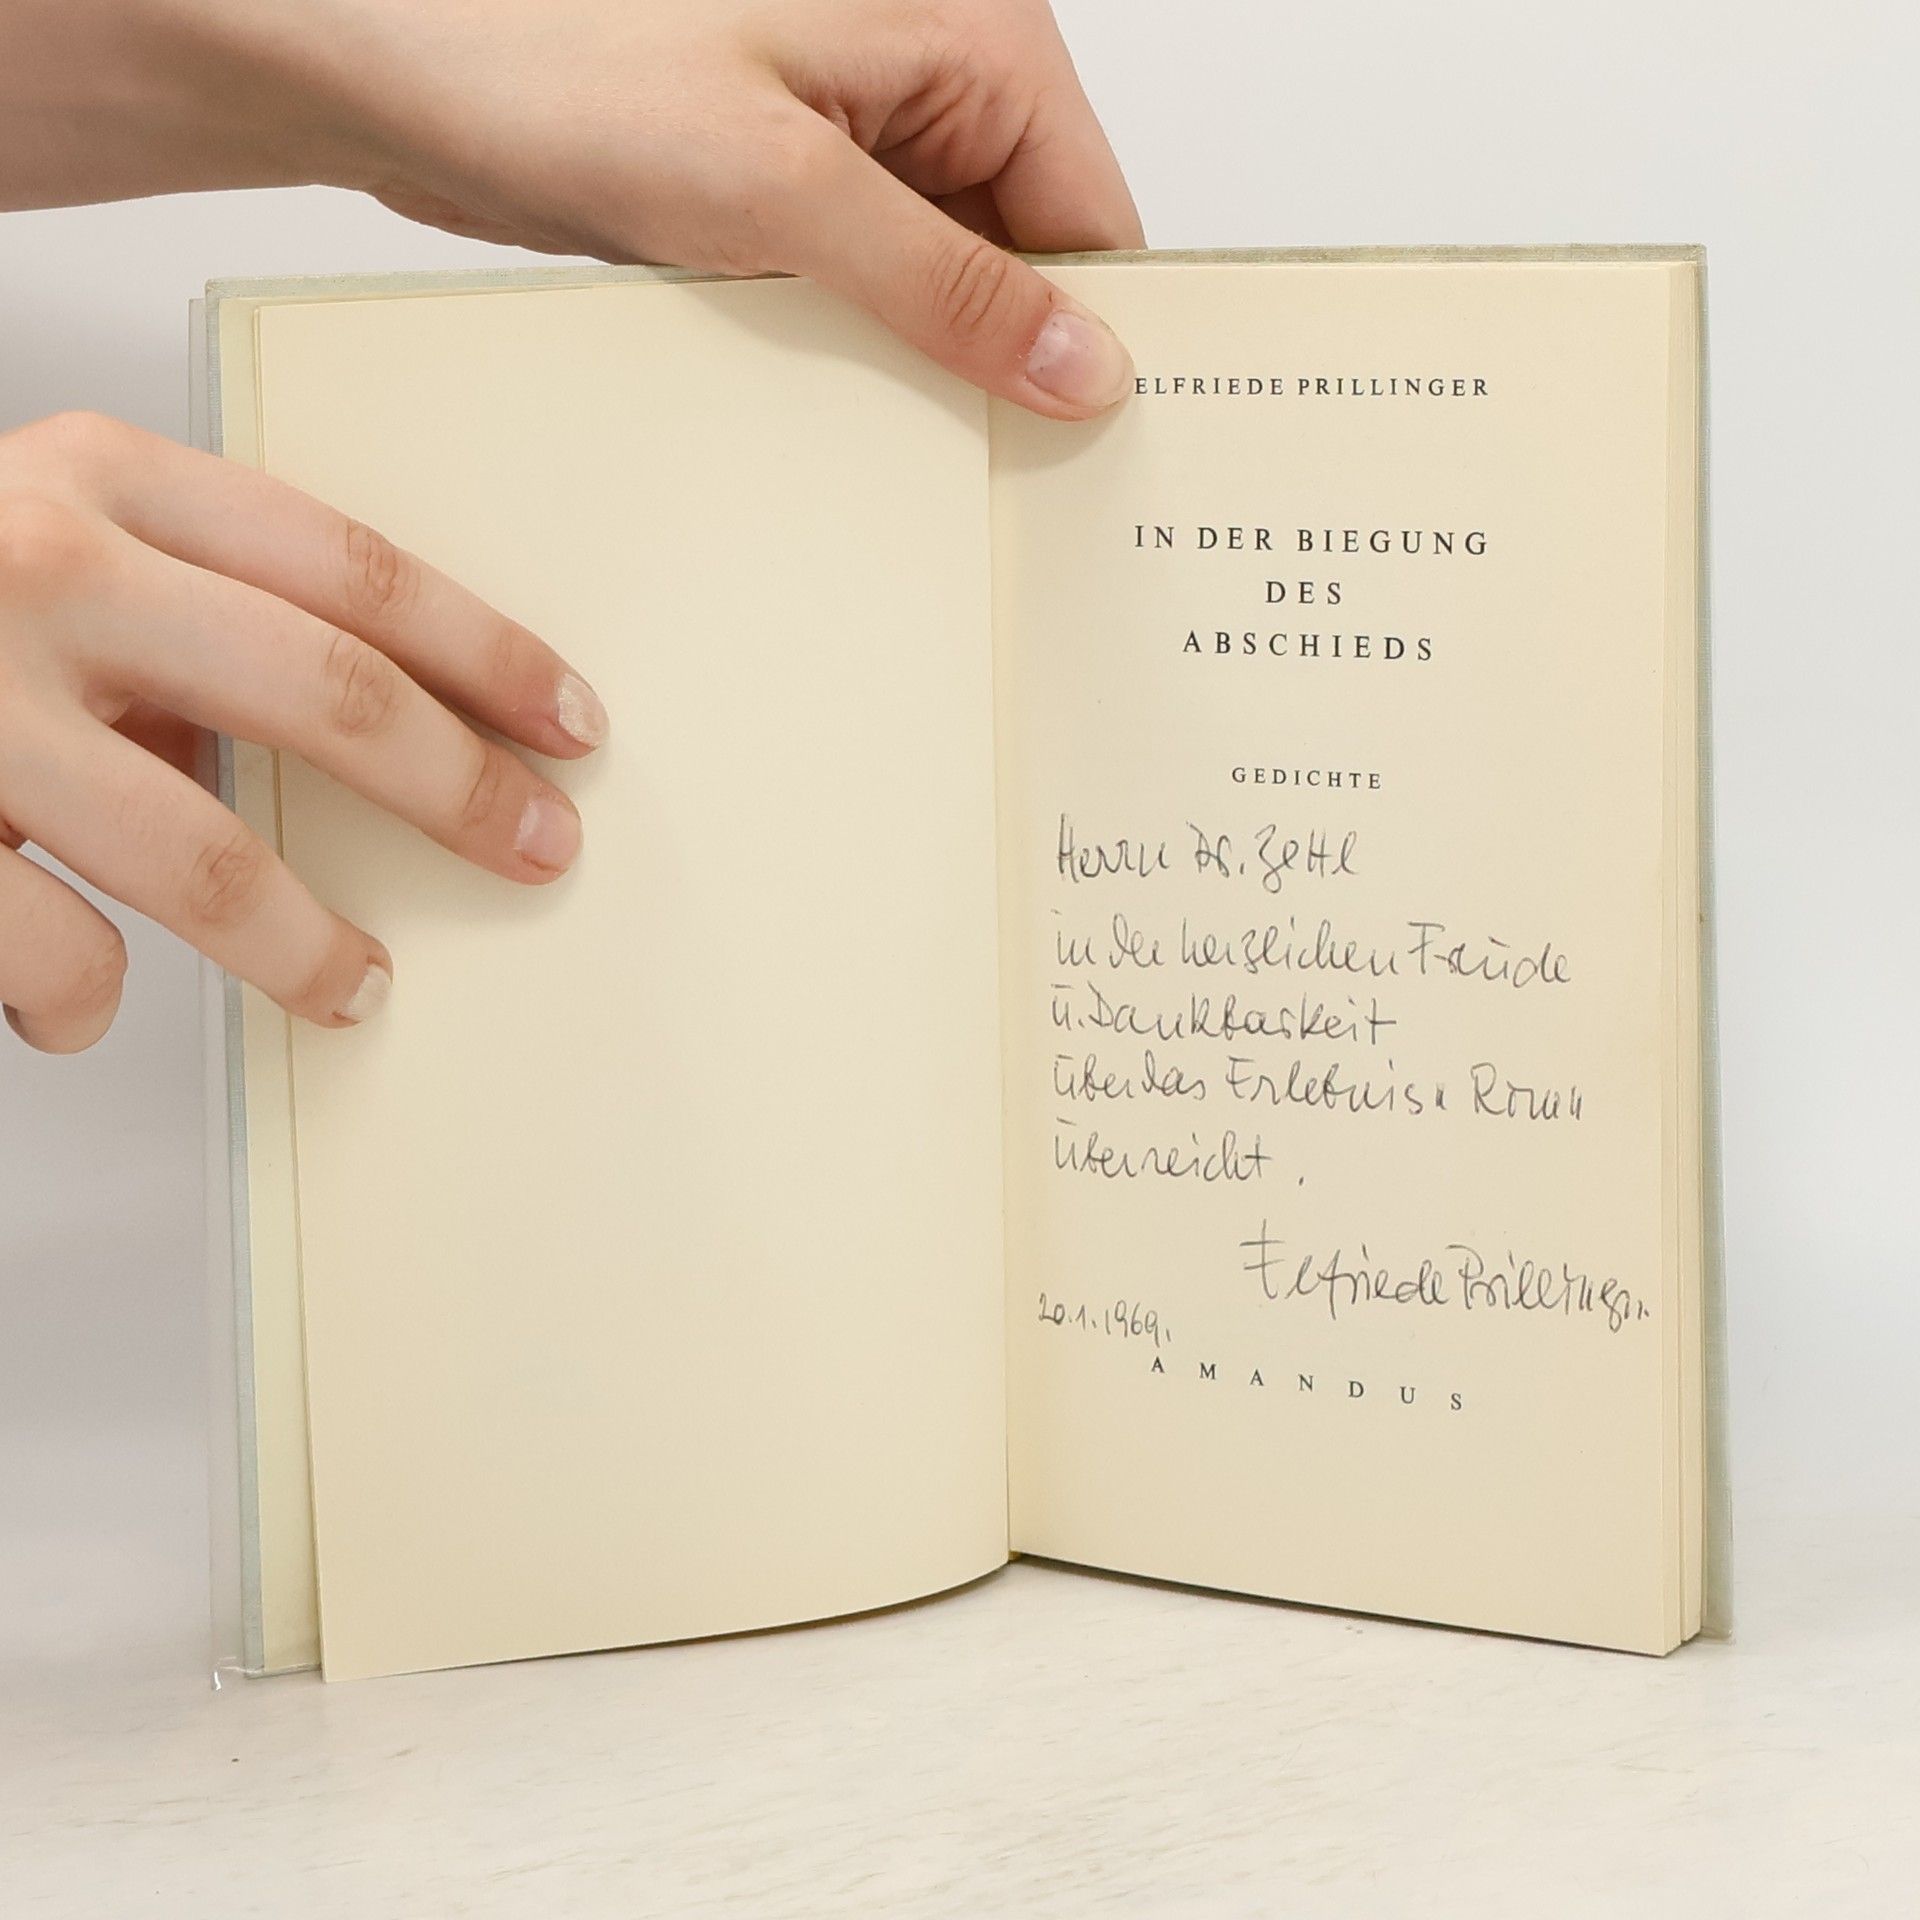 ELFRIEDE PRILLINGER
IN DER BIEGUNG
DES
ABSCHIEDS
GEDICHTE
Herrn Dr. Zettl
in der herzlichen Freude
u. Dankbarkeit
über das Erlebnis "Rom"
überreicht.
Elfriede Prillinger.
20.1.1969.
AMANDUS